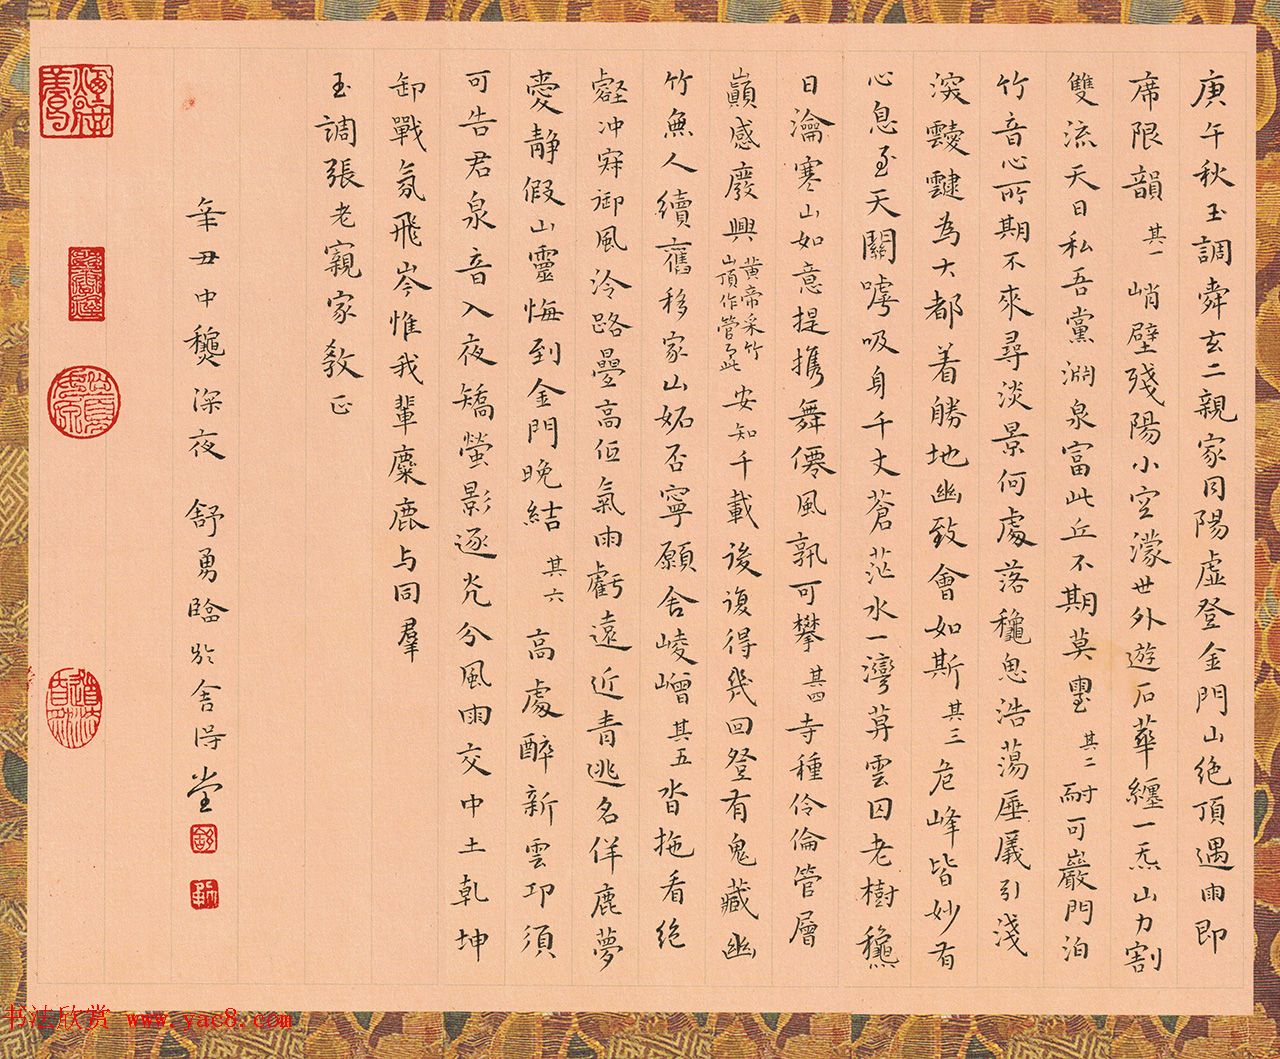 庚午秋玉調舜玄二親家同陽虛登金門山絕頂遇雨即
席限韻 其一 峭壁殘陽小空濛世外遊石華纏一炁山力割
雙流天日私吾黨淵泉富此丘不期莫 其二 耐可巖門泊
竹音心所期不來尋淡景何處落龝思浩蕩引淺
深靉靆為大都着勝地幽致會如斯 其三 危峰皆妙有
心息至天關噓吸身千丈蒼茫水一灣葬雲因老樹龝
日瀹寒山如意提攜舞僊風孰可攀 其四 寺種伶倫管層
巔感廢興 黃帝采竹山頂作管於此 安知千載後復得幾回登有鬼藏幽
竹無人續舊移家山妬否寧願舍崚嶒 其五 沓拖看絕
壑冲寂御風泠路疊高低氣雨虧遠近青逃名佯鹿夢
愛靜假山靈悔到金門晚結 其六 高處醉新雲卭須
可告君泉音入夜矯螢影逐光分風雨交中土乾坤
卸戰氛飛岑惟我輩麋鹿与同羣
玉調張老親家教正
辛丑中龝深夜 舒勇臨於舍得堂
书法欣赏 www.yac8.com